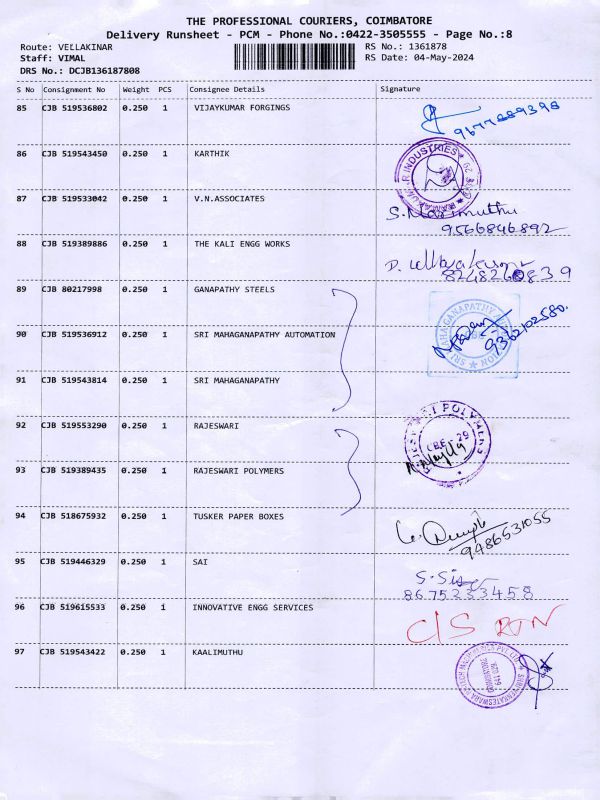 THE PROFESSIONAL COURIERS, COIMBATORE
Delivery Runsheet - PCM - Phone No.:0422-3505555 - Page No.:8
Route: VELLAKINAR RS No.: 1361878
Staff: VIMAL RS Date: 04-May-2024
DRS No.: DCJB136187808
S No Consignment No Weight PCS Consignee Details Signature
85 CJB 519536802 0.250 1 VIJAYKUMAR FORGINGS
9677889398
86 CJB 519543450 0.250 1 KARTHIK
INDUSTRIES
87 CJB 519533042 0.250 1 V.N.ASSOCIATES S. Marimuthu
9566846892
88 CJB 519389886 0.250 1 THE KALI ENGG WORKS
89 CJB 80217998 0.250 1 GANAPATHY STEELS
90 CJB 519536912 0.250 1 SRI MAHAGANAPATHY AUTOMATION
SRI MAHAGANAPATHY AUTOMATION
9362102580.
91 CJB 519543814 0.250 1 SRI MAHAGANAPATHY
92 CJB 519553290 0.250 1 RAJESWARI
POLYMERS
CBE - 29
93 CJB 519389435 0.250 1 RAJESWARI POLYMERS
94 CJB 518675932 0.250 1 TUSKER PAPER BOXES
9486531055
95 CJB 519446329 0.250 1 SAI
8675233458
96 CJB 519615533 0.250 1 INNOVATIVE ENGG SERVICES C/S RTN
97 CJB 519543422 0.250 1 KAALIMUTHU